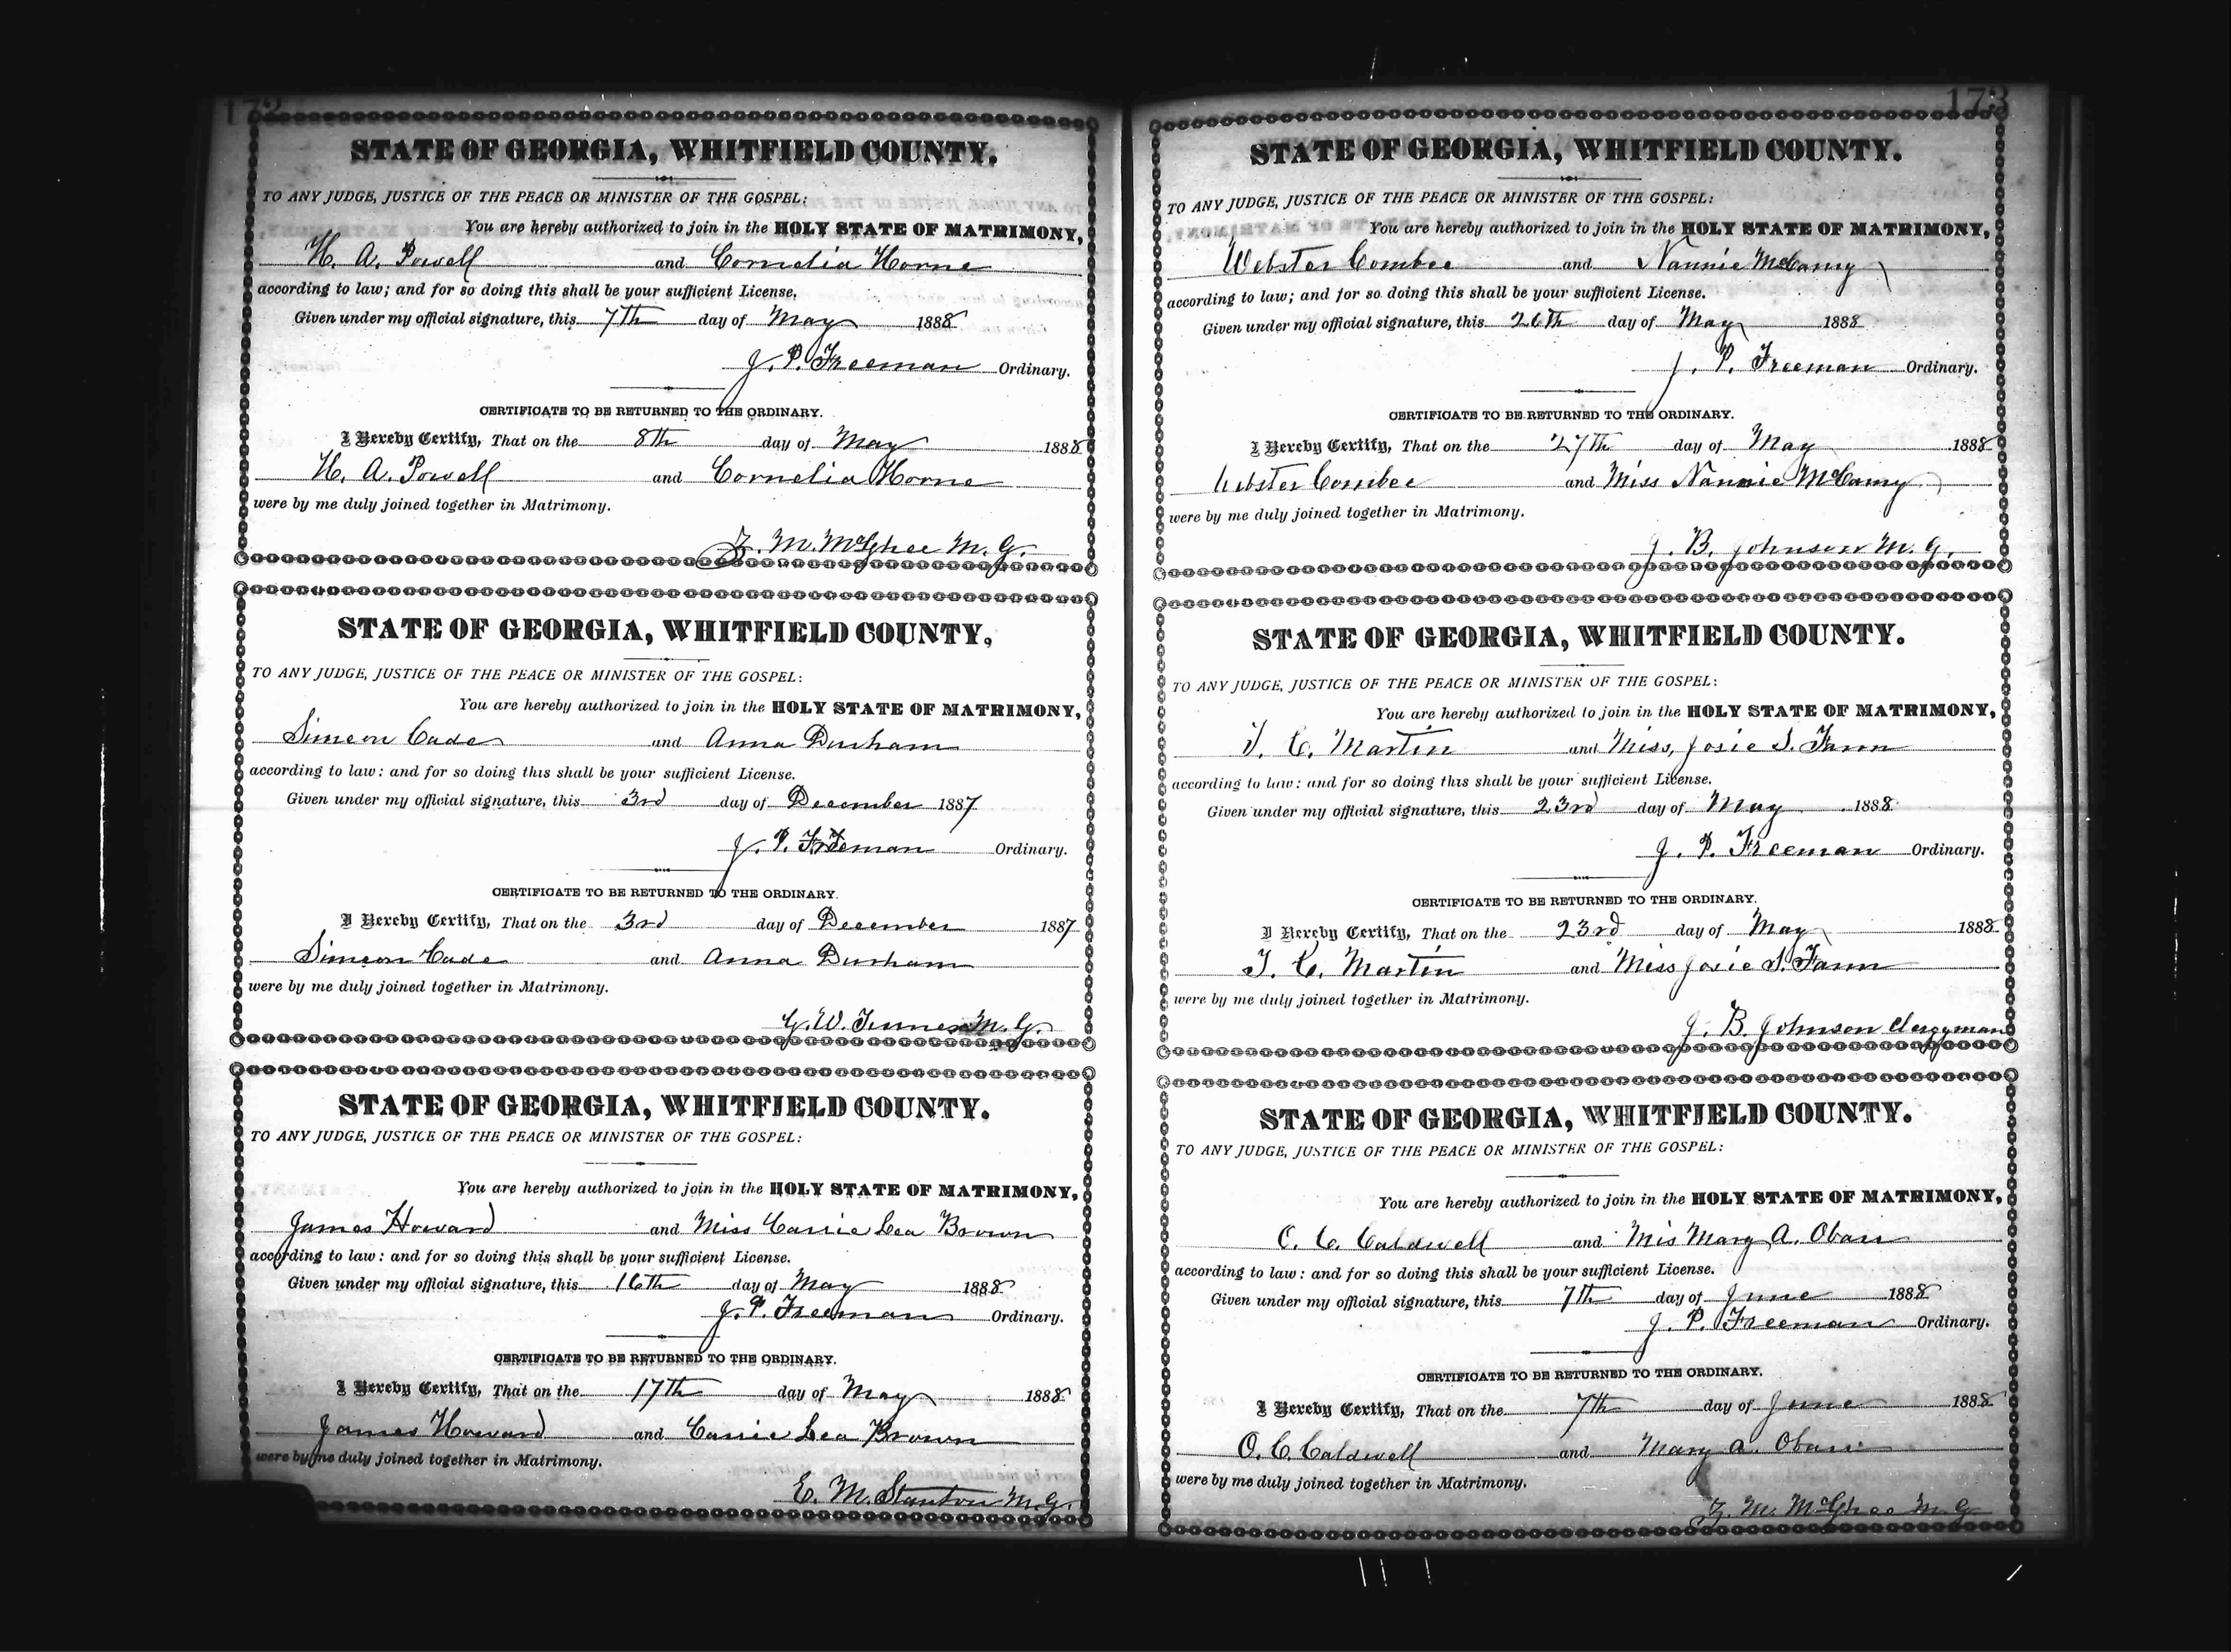 172
STATE OF GEORGIA, WHITFIELD COUNTY.
TO ANY JUDGE, JUSTICE OF THE PEACE OR MINISTER OF THE GOSPEL:
You are hereby authorized to join in the HOLY STATE OF MATRIMONY,
H. A. Powell and Cornelia Horne
according to law; and for so doing this shall be your sufficient License.
Given under my official signature, this 7th day of May 1888
J. P. Freeman Ordinary.
CERTIFICATE TO BE RETURNED TO THE ORDINARY.
I Hereby Certify, That on the 8th day of May 1888
H. A. Powell and Cornelia Horne
were by me duly joined together in Matrimony.
Z. M. McGhee M. G.
STATE OF GEORGIA, WHITFIELD COUNTY,
TO ANY JUDGE, JUSTICE OF THE PEACE OR MINISTER OF THE GOSPEL:
You are hereby authorized to join in the HOLY STATE OF MATRIMONY,
Simeon Cade and Anna Durham
according to law: and for so doing this shall be your sufficient License.
Given under my official signature, this 3rd day of December 1887
J. P. Freeman Ordinary.
CERTIFICATE TO BE RETURNED TO THE ORDINARY.
I Hereby Certify, That on the 3rd day of December 1887
Simeon Cade and Anna Durham
were by me duly joined together in Matrimony.
G. W. M. G.
STATE OF GEORGIA, WHITFIELD COUNTY.
TO ANY JUDGE, JUSTICE OF THE PEACE OR MINISTER OF THE GOSPEL:
You are hereby authorized to join in the HOLY STATE OF MATRIMONY,
James Howard and Miss Carrie Lea Brown
according to law: and for so doing this shall be your sufficient License.
Given under my official signature, this 16th day of May 1888
J. P. Freeman Ordinary.
CERTIFICATE TO BE RETURNED TO THE ORDINARY.
I Hereby Certify, That on the 17th day of May 1888
James Howard and Carrie Lea Brown
were by me duly joined together in Matrimony.
E. M. Stanton M. G.
173
STATE OF GEORGIA, WHITFIELD COUNTY.
TO ANY JUDGE, JUSTICE OF THE PEACE OR MINISTER OF THE GOSPEL:
You are hereby authorized to join in the HOLY STATE OF MATRIMONY,
Webster Combee and Nannie McCamy
according to law; and for so doing this shall be your sufficient License.
Given under my official signature, this 26th day of May 1888
J. P. Freeman Ordinary.
CERTIFICATE TO BE RETURNED TO THE ORDINARY.
I Hereby Certify, That on the 27th day of May 1888
Webster Combee and Miss Nannie McCamy
were by me duly joined together in Matrimony.
J. B. Johnson M. G.
STATE OF GEORGIA, WHITFIELD COUNTY.
TO ANY JUDGE, JUSTICE OF THE PEACE OR MINISTER OF THE GOSPEL:
You are hereby authorized to join in the HOLY STATE OF MATRIMONY,
T. C. Martin and Miss, Josie S. Fann
according to law: and for so doing this shall be your sufficient License.
Given under my official signature, this 23rd day of May 1888
J. P. Freeman Ordinary.
CERTIFICATE TO BE RETURNED TO THE ORDINARY.
I Hereby Certify, That on the 23rd day of May 1888
T. C. Martin and Miss Josie S. Fann
were by me duly joined together in Matrimony.
J. B. Johnson Clergyman
STATE OF GEORGIA, WHITFIELD COUNTY.
TO ANY JUDGE, JUSTICE OF THE PEACE OR MINISTER OF THE GOSPEL:
You are hereby authorized to join in the HOLY STATE OF MATRIMONY,
O. C. Caldwell and Mis Mary A. Obarr
according to law: and for so doing this shall be your sufficient License.
Given under my official signature, this 7th day of June 1888
J. P. Freeman Ordinary.
CERTIFICATE TO BE RETURNED TO THE ORDINARY.
I Hereby Certify, That on the 7th day of June 1888
O. C. Caldwell and Mary A. Obarr
were by me duly joined together in Matrimony.
Z. M. McGhee M. G.